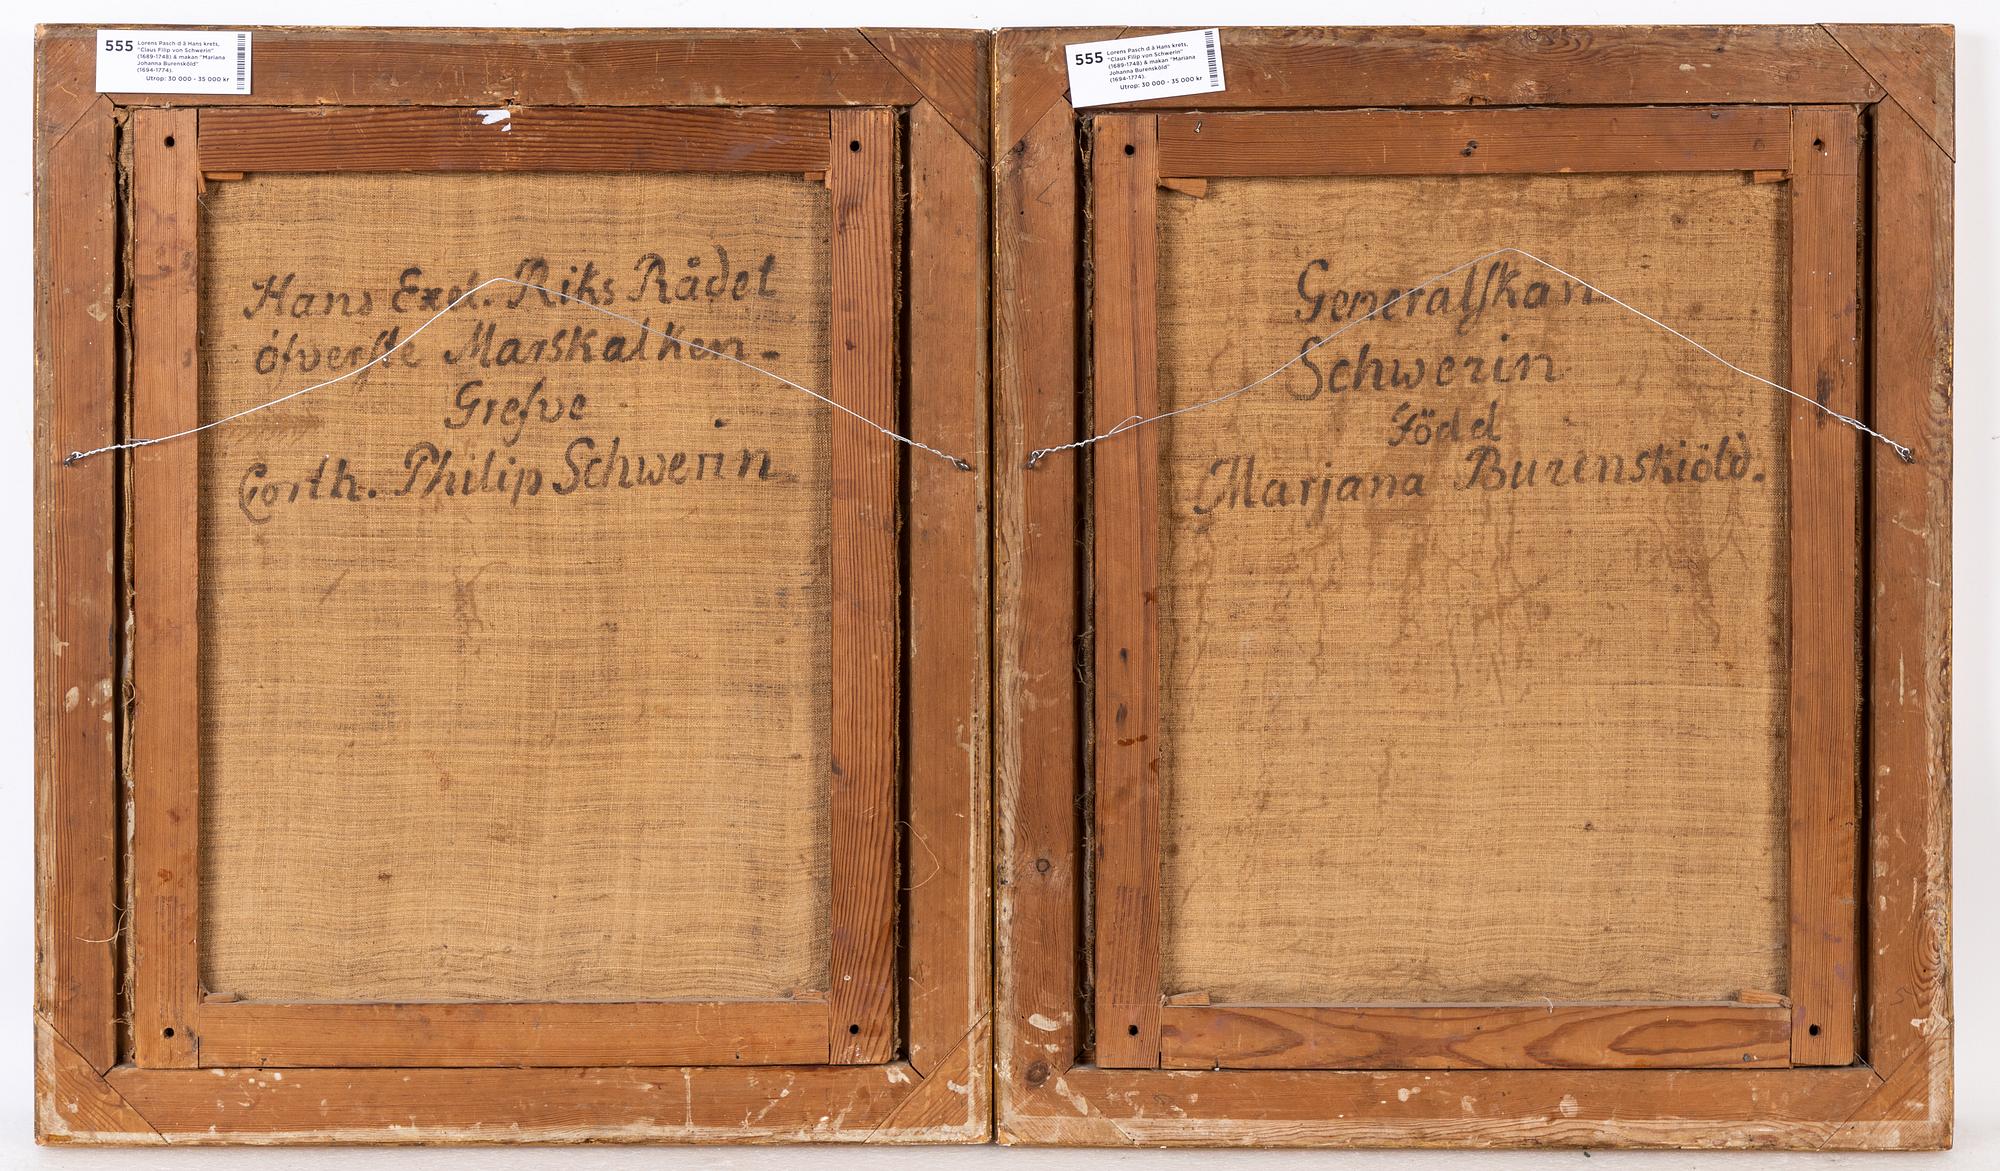 555
Lorens Pasch d ä Hans krets,
"Claus Filip von Schwerin"
(1689-1748) & makan "Mariana
Johanna Burensköld"
(1694-1774).
Utrop: 30 000 - 35 000 kr
Hans Excl. Riks Rådet
öfverste Marskalken-
Grefve
Corth. Philip Schwerin
555
Lorens Pasch d ä Hans krets,
"Claus Filip von Schwerin"
(1689-1748) & makan "Mariana
Johanna Burensköld"
(1694-1774).
Utrop: 30 000 - 35 000 kr
Generalskan
Schwerin
Född
Marjana Burenskiöld.